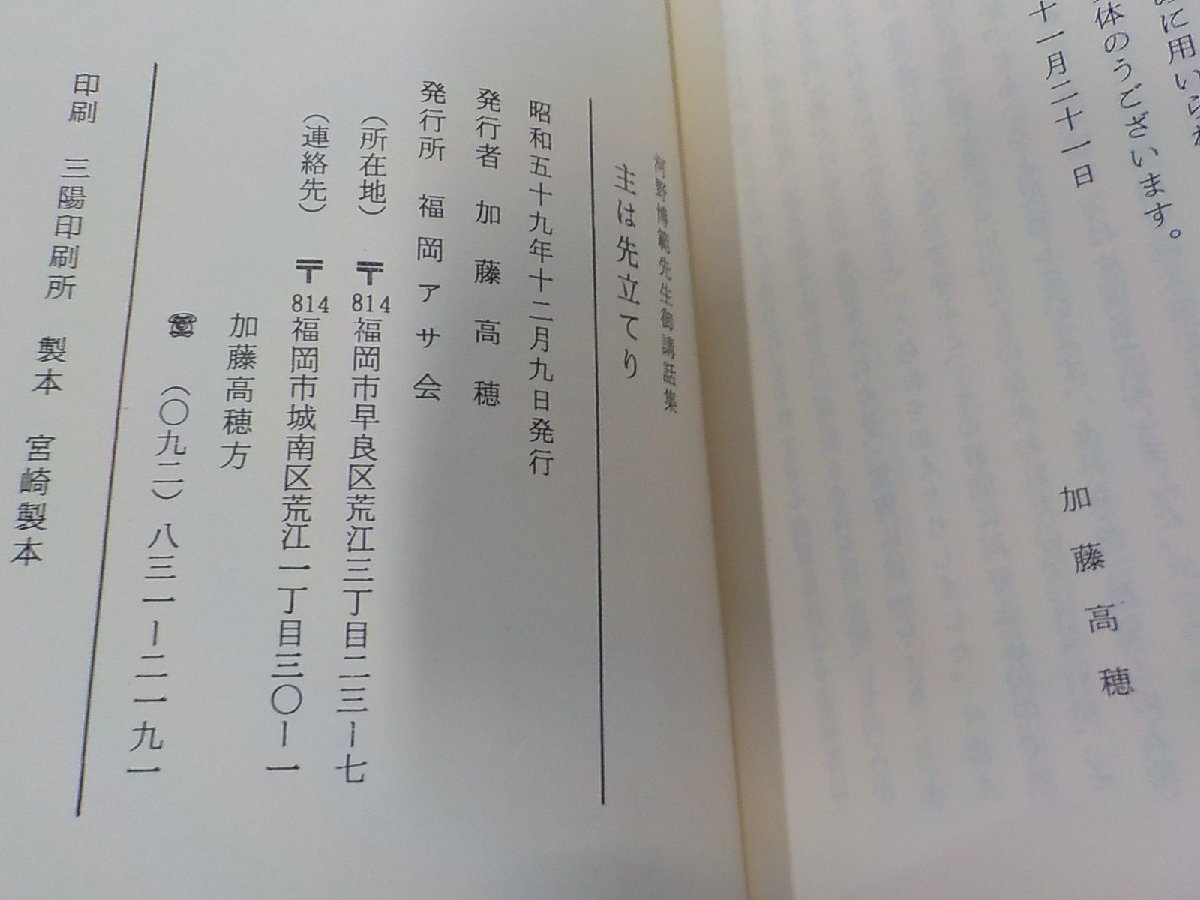 に用いら
体のうございます。
十一月二十一日
加藤高穂
河野博範先生御講話集
主は先立てり
昭和五十九年十二月九日発行
発行者 加藤高穂
発行所 福岡アサ会
（所在地） 〒814 福岡市早良区荒江三丁目二三ー七
（連絡先） 〒814 福岡市城南区荒江一丁目三〇ー一
加藤高穂方
☎ （〇九二）八三一ー二一九一
印刷 三陽印刷所 製本 宮崎製本